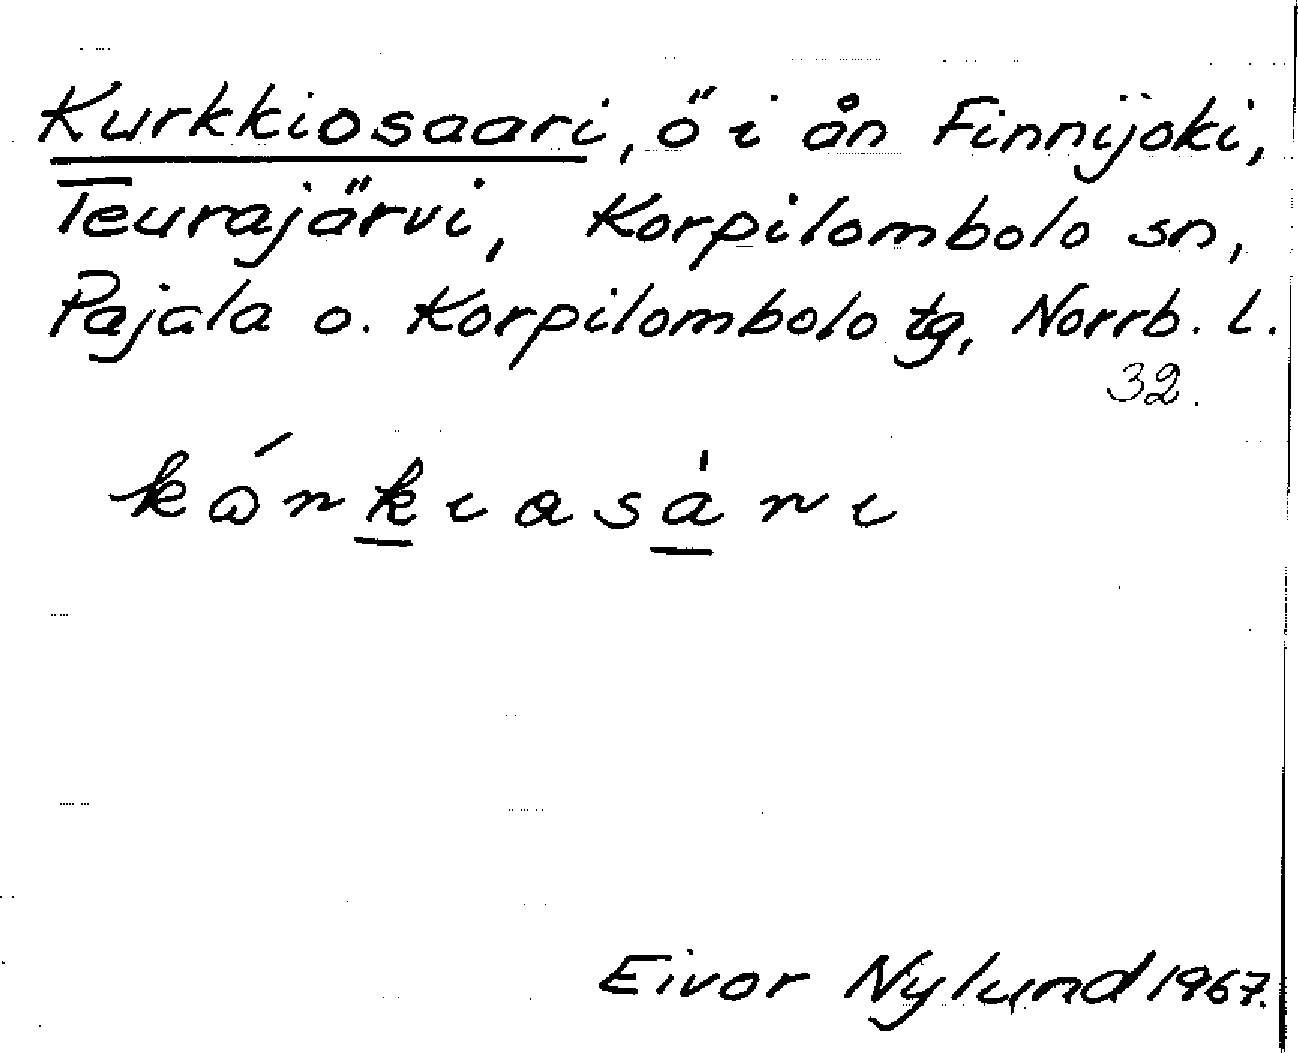 Kurkkiosaari, ö i ån Finnijoki,
Teurajärvi, Korpilombolo sn,
Pajala o. Korpilombolo tg, Norrb. l.
32.
kɷ́rkıasàrı
Eivor Nylund 1967.